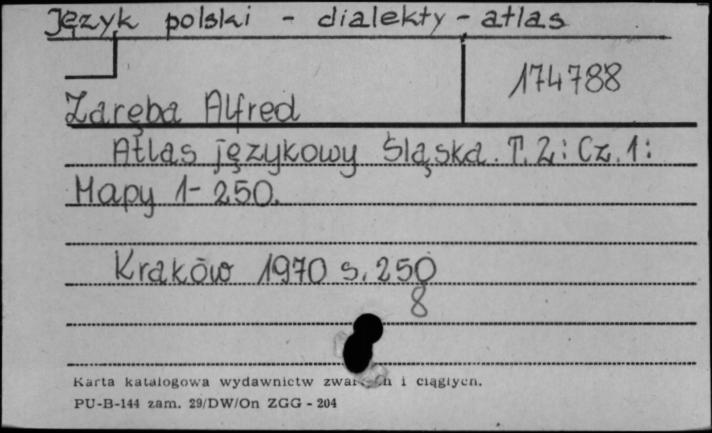 Język polski - dialekty - atlas
174788
Zaręba Alfred
Atlas językowy Śląska. T. 2: Cz. 1:
Mapy 1-250.
Kraków 1970 s. 250
8
Karta katalogowa wydawnictw i ciągłych.
PU-B-144 zam. 29/DW/On ZGG - 204